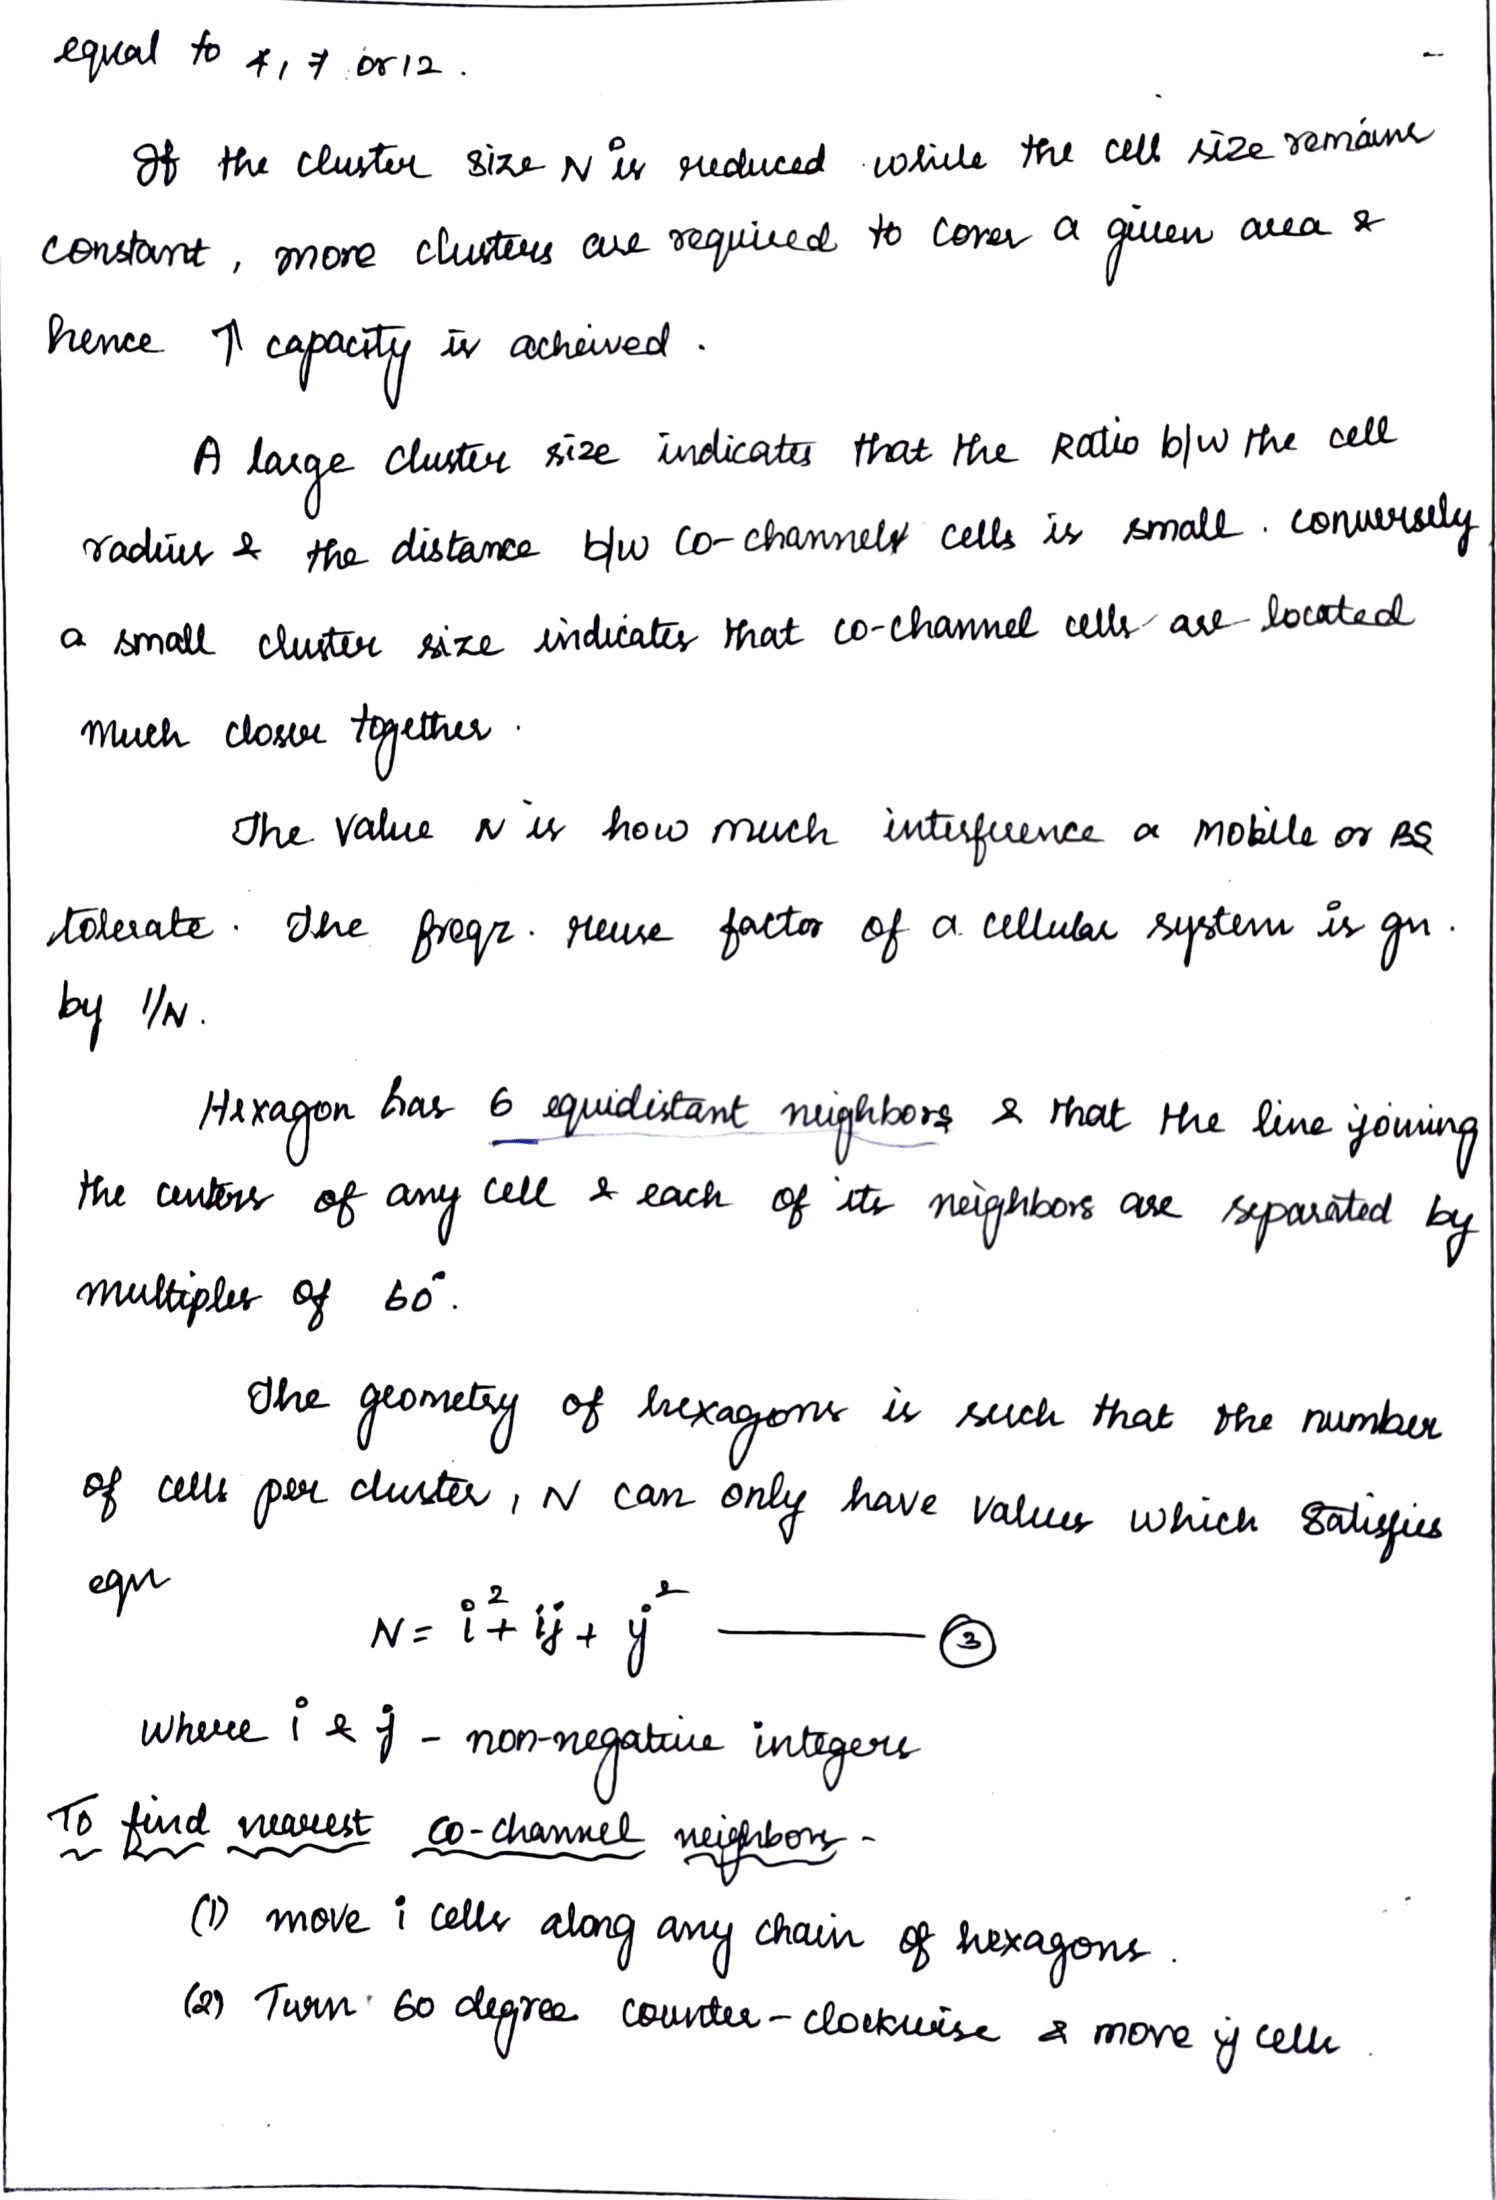 equal to 4, 7 or 12.
If the cluster size N is reduced while the cell size remains
constant, more clusters are required to cover a given area &
hence ↑ capacity is acheived.
A large cluster size indicates that the Ratio b/w the cell
radius & the distance b/w co-channel cells is small. conversely
a small cluster size indicates that co-channel cells are located
much closer together.
The value N is how much interference a mobile or BS
tolerate. The freqz. reuse factor of a cellular system is gn.
by 1/N.
Hexagon has 6 equidistant neighbors & that the line joining
the centers of any cell & each of its neighbors are separated by
multiples of 60°.
The geometry of hexagons is such that the number
of cells per cluster, N can only have values which satisfies
eqn
N = i² + ij + j² ——— ③
where i & j - non-negative integers
To find nearest co-channel neighbors -
(1) move i cells along any chain of hexagons.
(2) Turn 60 degree counter-clockwise & move j cells.